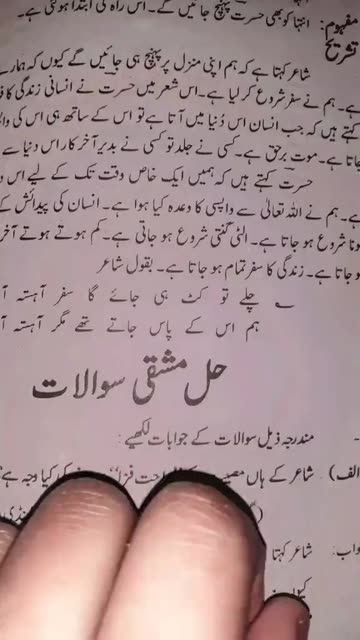 مفہوم: انتہا کو بھی حسرت پہنچ جائیں گے۔ اس راہ کی ابتدا ہو گئی ہے۔
تشریح
شاعر کہتا ہے کہ ہم اپنی منزل پر پہنچ ہی جائیں گے کیوں کہ ہمارے
ہے۔ ہم نے سفر شروع کر لیا ہے۔ اس شعر میں حسرت نے انسانی زندگی کا
کہتے ہیں کہ جب انسان اس دُنیا میں آتا ہے تو اس کے ساتھ ہی اس کی
جاتا ہے۔ موت برحق ہے۔ کسی نے جلد تو کسی نے بدیر آخر کار اس دنیا سے
حسرت کہتے ہیں کہ ہمیں ایک خاص وقت تک کے لیے اس
ہے۔ ہم نے اللہ تعالیٰ سے واپسی کا وعدہ کیا ہوا ہے۔ انسان کی پیدائش کے
ہونا شروع ہو جاتا ہے۔ الٹی گنتی شروع ہو جاتی ہے۔ کم ہوتے ہوتے آخر
ہو جاتا ہے۔ زندگی کا سفر تمام ہو جاتا ہے۔ بقول شاعر
چلے تو کٹ ہی جائے گا سفر آہستہ
ہم اس کے پاس جاتے تھے مگر آہستہ
حل مشقی سوالات
مندرجہ ذیل سوالات کے جوابات لکھیے:
(الف) شاعر کے ہاں کی کیا وجہ ہے
جواب: شاعر کہتا